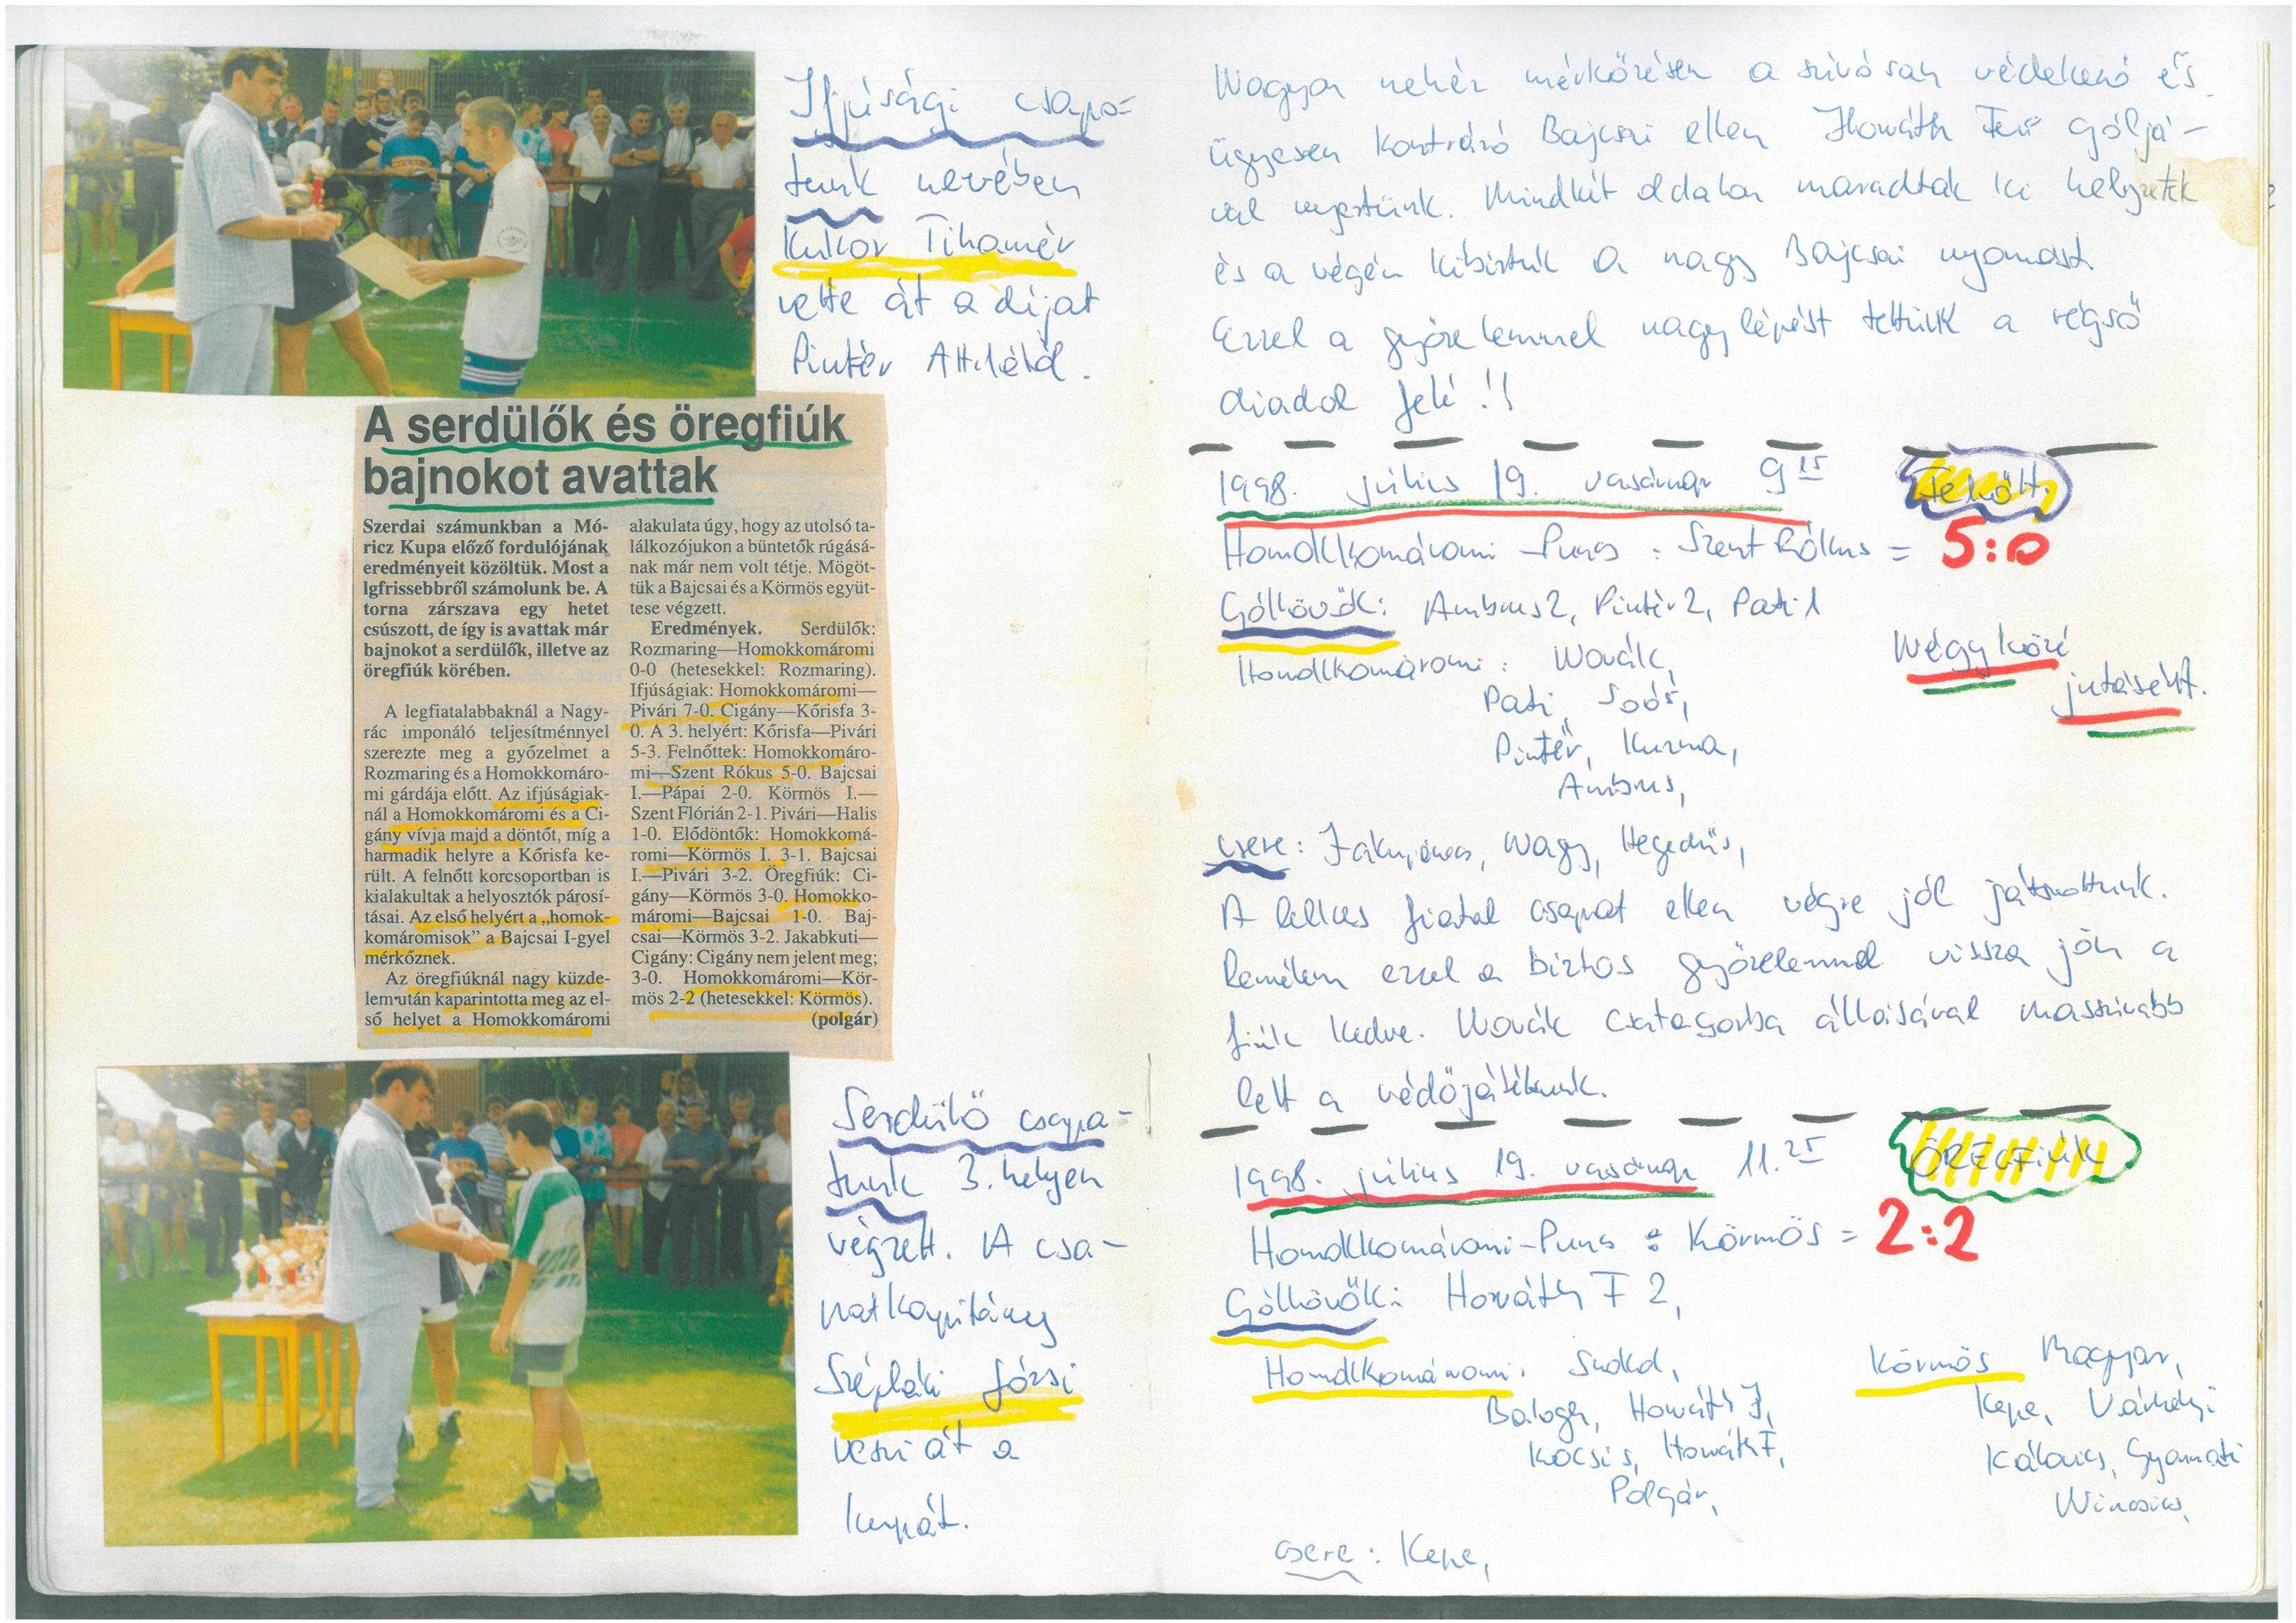 Ifjúsági csapa-
tunk nevében
Kulkor Tihamér
vette át a díjat
Pintér Attilától.
A serdülők és öregfiúk
bajnokot avattak
Szerdai számunkban a Mó-
ricz Kupa előző fordulójának
eredményeit közöltük. Most a
lgfrissebbről számolunk be. A
torna zárszava egy hetet
csúszott, de így is avattak már
bajnokot a serdülők, illetve az
öregfiúk körében.
A legfiatalabbaknál a Nagy-
rác imponáló teljesítménnyel
szerezte meg a győzelmet a
Rozmaring és a Homokkomáro-
mi gárdája előtt. Az ifjúságiak-
nál a Homokkomáromi és a Ci-
gány vívja majd a döntőt, míg a
harmadik helyre a Kőrisfa ke-
rült. A felnőtt korcsoportban is
kialakultak a helyosztók párosí-
tásai. Az első helyért a „homok-
komáromisok” a Bajcsai I-gyel
mérkőznek.
Az öregfiúknál nagy küzde-
lem után kaparintotta meg az el-
ső helyet a Homokkomáromi
alakulata úgy, hogy az utolsó ta-
lálkozójukon a büntetők rúgásá-
nak már nem volt tétje. Mögöt-
tük a Bajcsai és a Körmös együt-
tese végzett.
Eredmények. Serdülők:
Rozmaring—Homokkomáromi
0-0 (hetesekkel: Rozmaring).
Ifjúságiak: Homokkomáromi—
Pivári 7-0. Cigány—Kőrisfa 3-
0. A 3. helyért: Kőrisfa—Pivári
5-3. Felnőttek: Homokkomáro-
mi—Szent Rókus 5-0. Bajcsai
I.—Pápai 2-0. Körmös I.—
Szent Flórián 2-1. Pivári—Halis
1-0. Elődöntők: Homokkomá-
romi—Körmös I. 3-1. Bajcsai
I.—Pivári 3-2. Öregfiúk: Ci-
gány—Körmös 3-0. Homokko-
máromi—Bajcsai 1-0. Baj-
csai—Körmös 3-2. Jakabkuti—
Cigány: Cigány nem jelent meg;
3-0. Homokkomáromi—Kör-
mös 2-2 (hetesekkel: Körmös).
(polgár)
Serdülő csapa-
tunk 3. helyen
végzett. A csa-
patkapitány
Széplaki Józsi
veszi át a
kupát.
Nagyon nehéz mérkőzésen a szívósan védekező és
ügyesen kontrázó Bajcsai ellen Horváth Feri góljá-
val nyertünk. Mindkét oldalon maradtak ki helyzetek
és a végén kibírtuk a nagy Bajcsai nyomást
Ezzel a győzelemmel nagy lépést tettünk a végső
diadal felé!!
1998. július 19. vasárnap 9 15 Felnőtt
Homokkomáromi - Puma : Szent Rókus = 5:0
Góllövők: Ambrus 2, Pintér 2, Pati 1
Négy közé
jutásért.
Homokkomáromi: Novák,
Pati, Soós,
Pintér, Kuzma,
Ambrus,
csere: Nagy, Hegedűs,
A lelkes fiatal csapat ellen végre jól játszottunk.
Remélem ezzel a biztos győzelemmel vissza jön a
fiúk kedve. Novák csatasorba állásával masszívabb
lett a védőjátékunk.
1998. július 19. vasárnap 11.25 ÖREGFiúk
Homokkomáromi-Puma : Körmös = 2:2
Góllövők: Horváth F 2,
Homokkomáromi:
Balogh, Horváth J,
Kocsis, Horváth F,
Polgár,
csere: Kepe,
Körmös Magyar,
Kepe, Várhelyi
Kálovics, Gyarmati